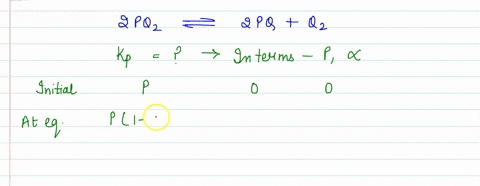 2PQ₂ ⇌ 2PQ + Q₂
Kp = ? → In terms - P, ∝
Initial P 0 0
At eq. P(1-